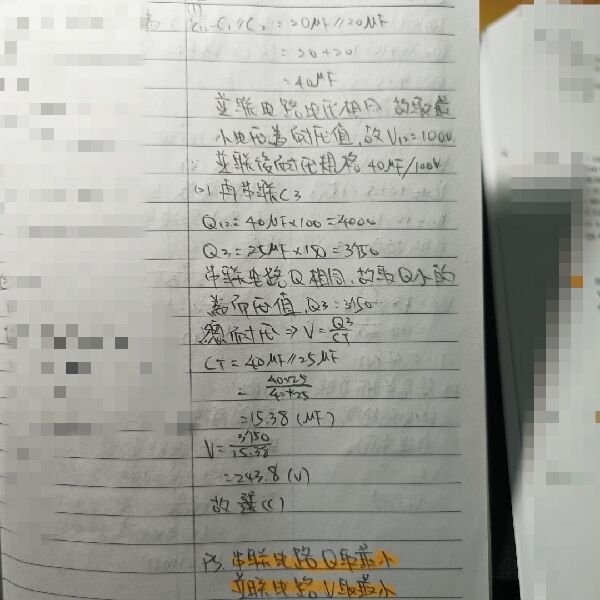 (1)
C₁₂=C₁//C₂=20μF//20μF
=20+20
=40μF
並聯电路电压相同,故取最
小电压為耐压值,故V₁₂=100V
並聯後耐压規格40μF/100V
(2)再串聯C₃
Q₁₂=40μF×100=4000
Q₃=25μF×150=3750
串聯电路Q相同,故取Q小的
為耐压值,Q₃=3750
總耐压⇒V=Q₃/CT
CT=40μF//25μF
=40×25/40+25
=15.38(μF)
V=3750/15.38
=243.8(V)
故選(C)
PS.串聯电路Q取最小
並聯电路V取最小